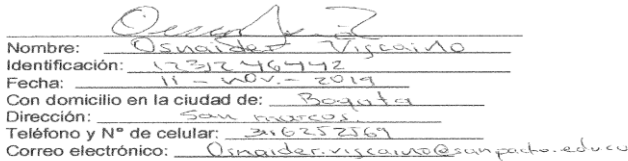 Nombre: Osnaider Viscaino
Identificación: 1231246442
Fecha: 11 - NOV. - 2019
Con domicilio en la ciudad de: Bogota
Dirección: San marcos.
Teléfono y N° de celular: 3116252569
Correo electrónico: